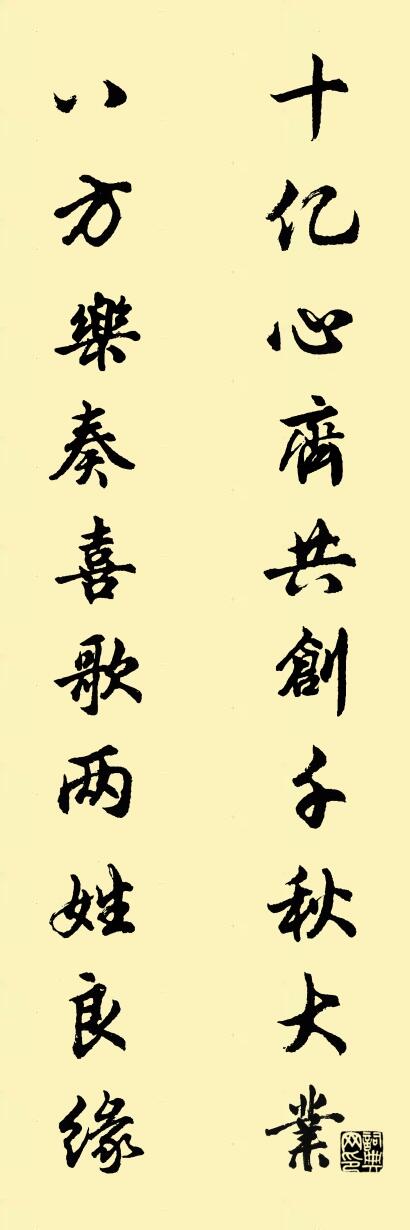 十亿心齊共創千秋大業
八方樂奏喜歌两姓良缘
詞典网印